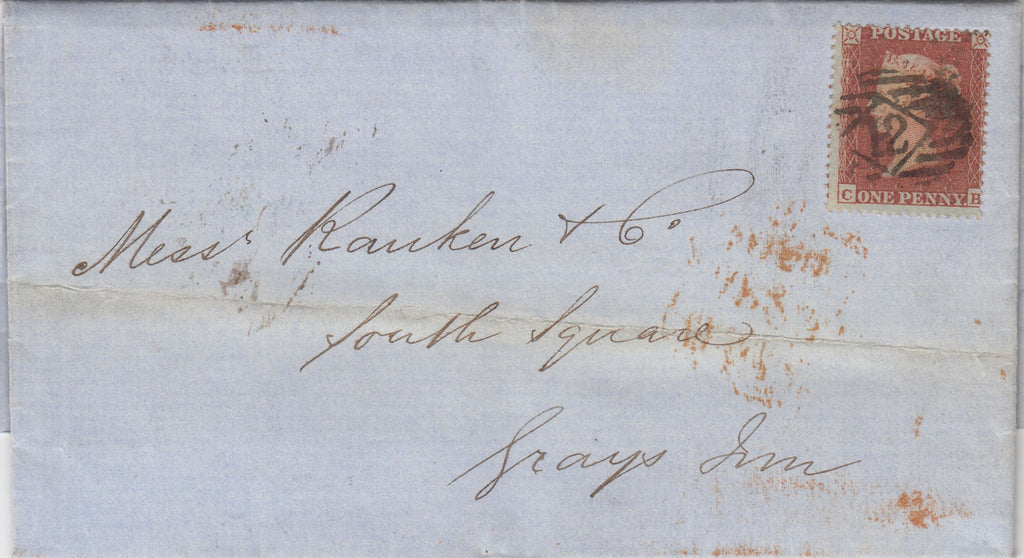 POSTAGE
12
C ONE PENNY H
Messrs Ranken & Co
South Square
Grays Inn